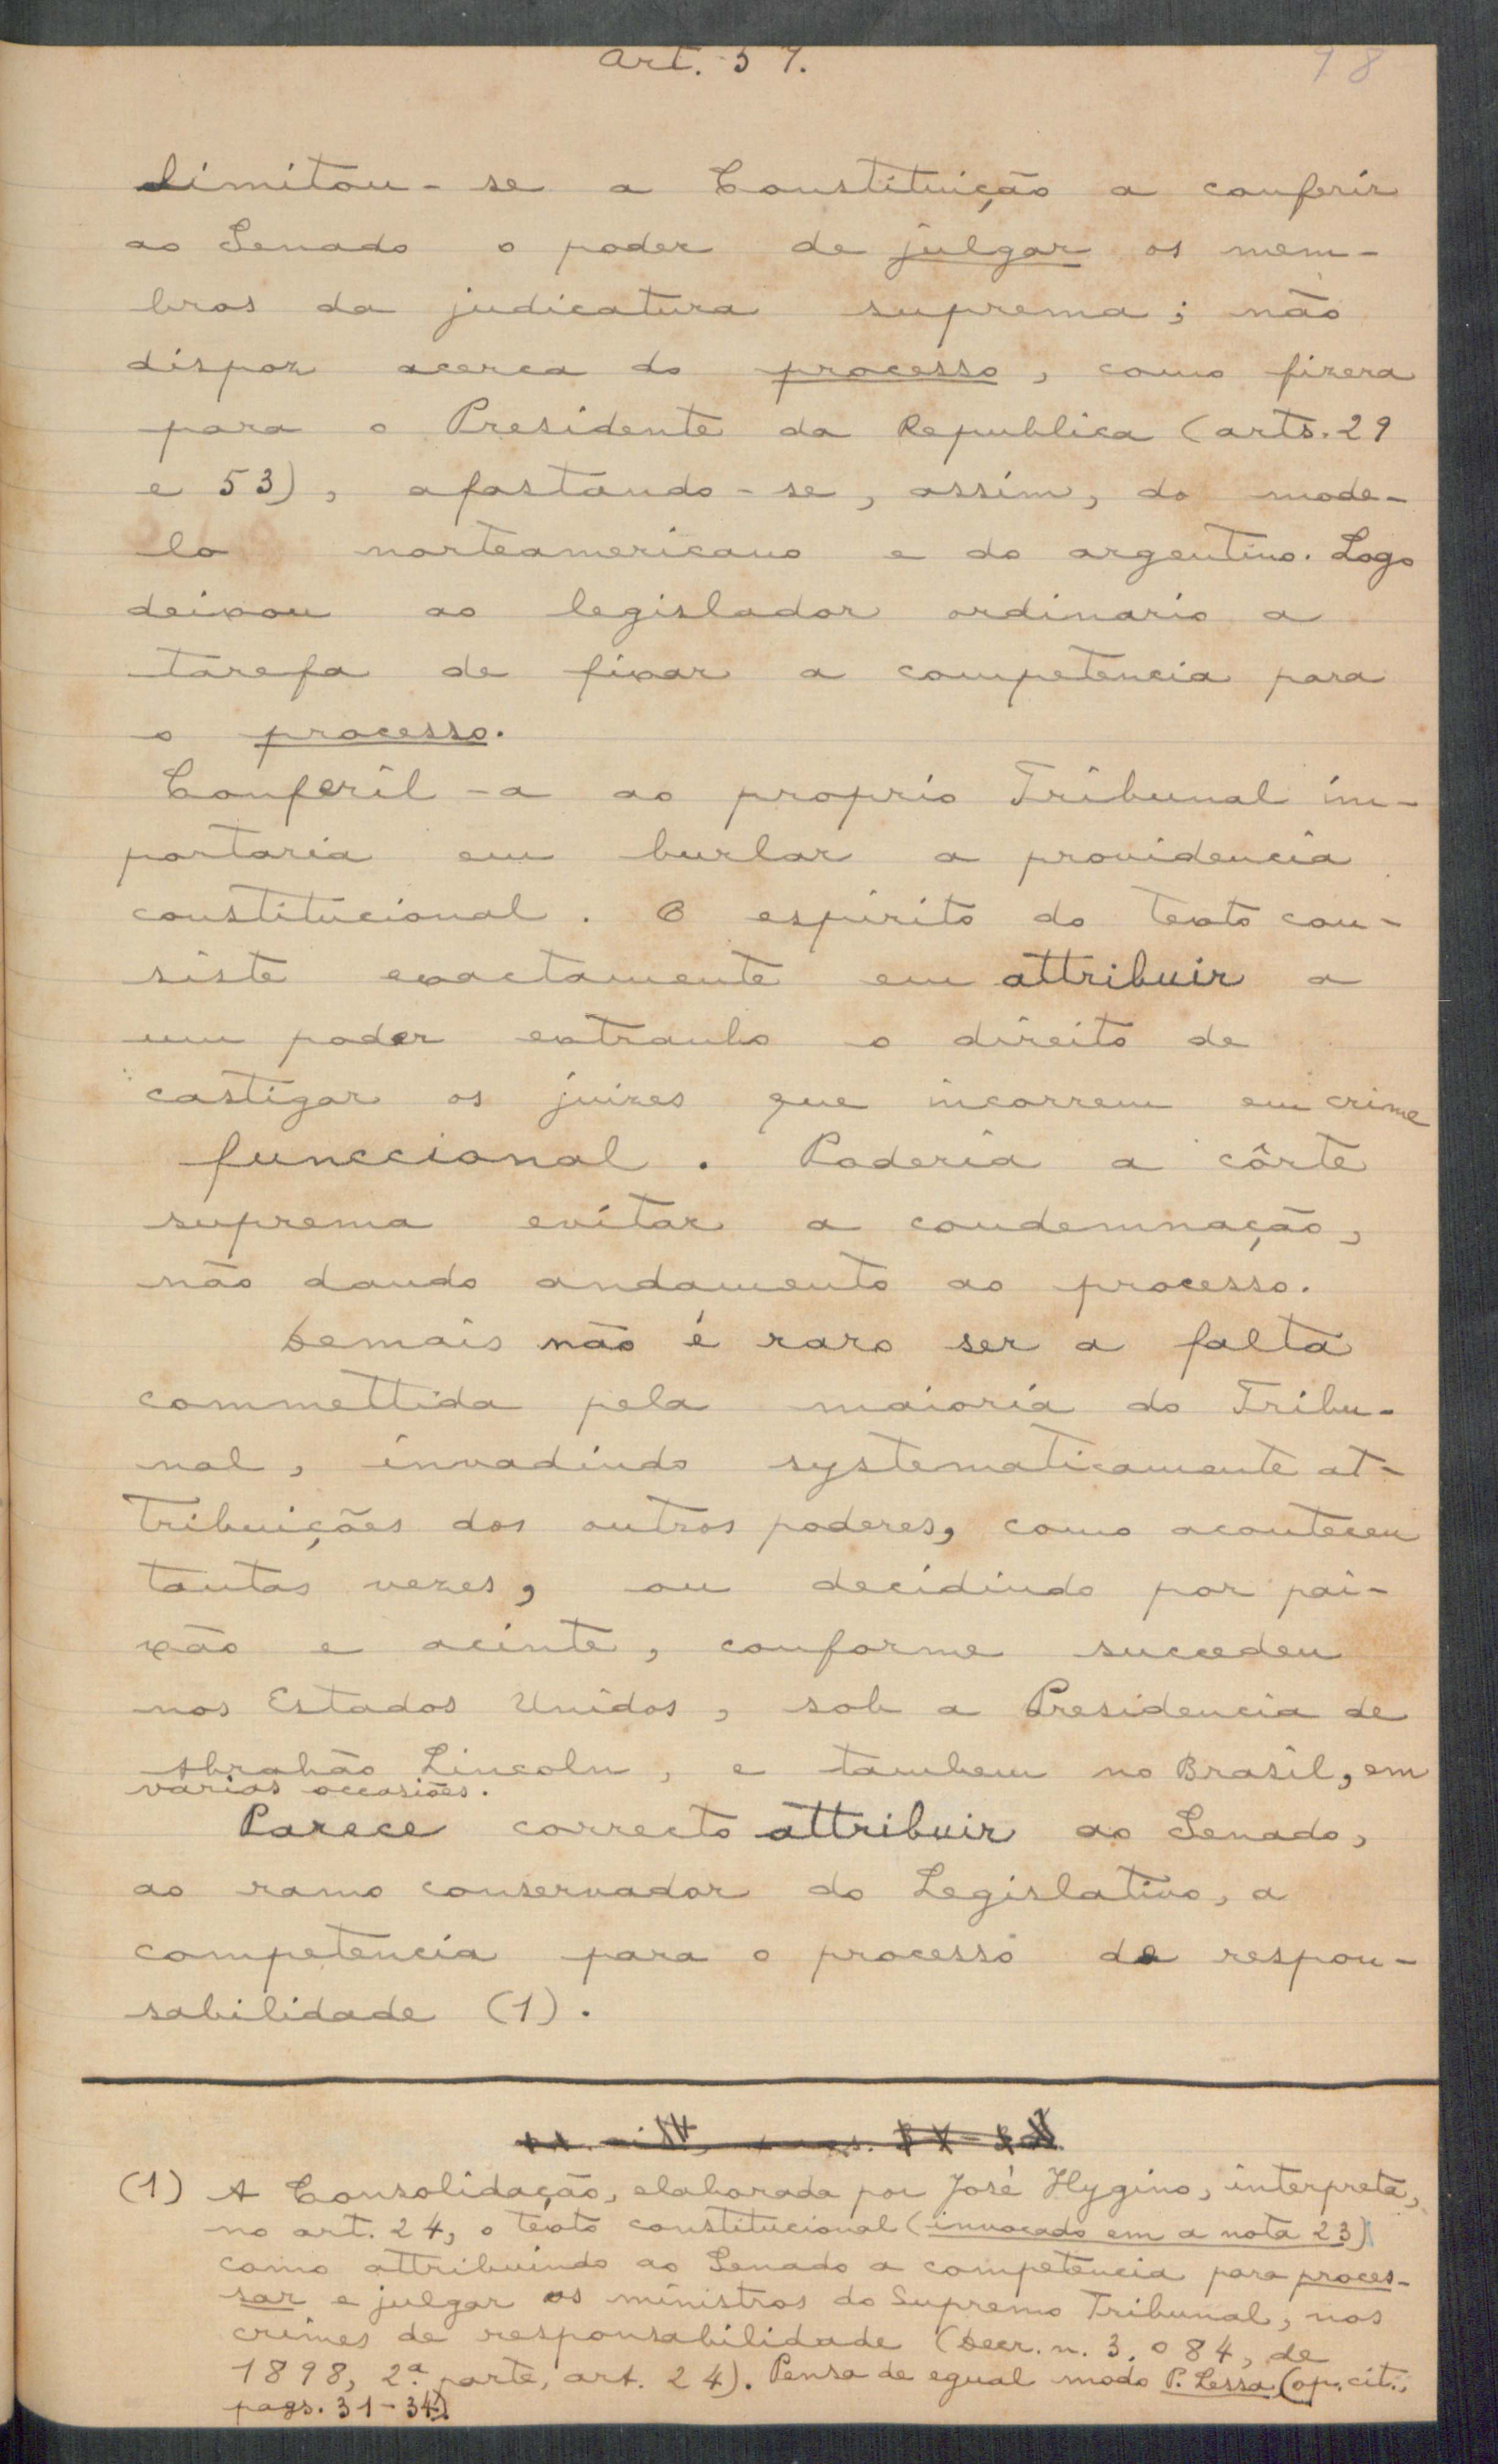 Art. 57.
98
Limitou-se a Constituição a conferir
ao Senado o poder de julgar os mem-
bros da judicatura suprema; não
dispoz acerca do processo, como fizera
para o Presidente da Republica (arts. 29
e 53), afastando-se, assim, do mode-
lo norteamericano e do argentino. Logo
deixou ao legislador ordinario a
tarefa de fixar a competencia para
o processo.
Conferil-a ao proprio Tribunal im-
portaria em burlar a providencia
constitucional. O espirito do texto con-
siste exactamente em attribuir a
um poder extranho o direito de
castigar os juizes que incorrem em crime
funccional. Poderia a côrte
suprema evitar a condemnação,
não dando andamento ao processo.
Demais não é raro ser a falta
commettida pela maioria do Tribu-
nal, invadindo systematicamente at-
tribuições dos outros poderes, como aconteceu
tantas vezes, ou decidindo por pai-
xão e acinte, conforme succedeu
nos Estados Unidos, sob a Presidencia de
Abrahão Lincoln, e tambem no Brasil, em
varias occasiões.
Parece correcto attribuir ao Senado,
ao ramo conservador do Legislativo, a
competencia para o processo de respon-
sabilidade (1).
(1) A Consolidação, elaborada por José Hygino, interpreta,
no art. 24, o texto constitucional (invocado em a nota 23)
como attribuindo ao Senado a competencia para proces-
sar e julgar os ministros do Supremo Tribunal, nos
crimes de responsabilidade (Decr. n. 3.084, de
1898, 2ª parte, art. 24). Pensa de egual modo P. Lessa (op. cit.,
pags. 31-34).